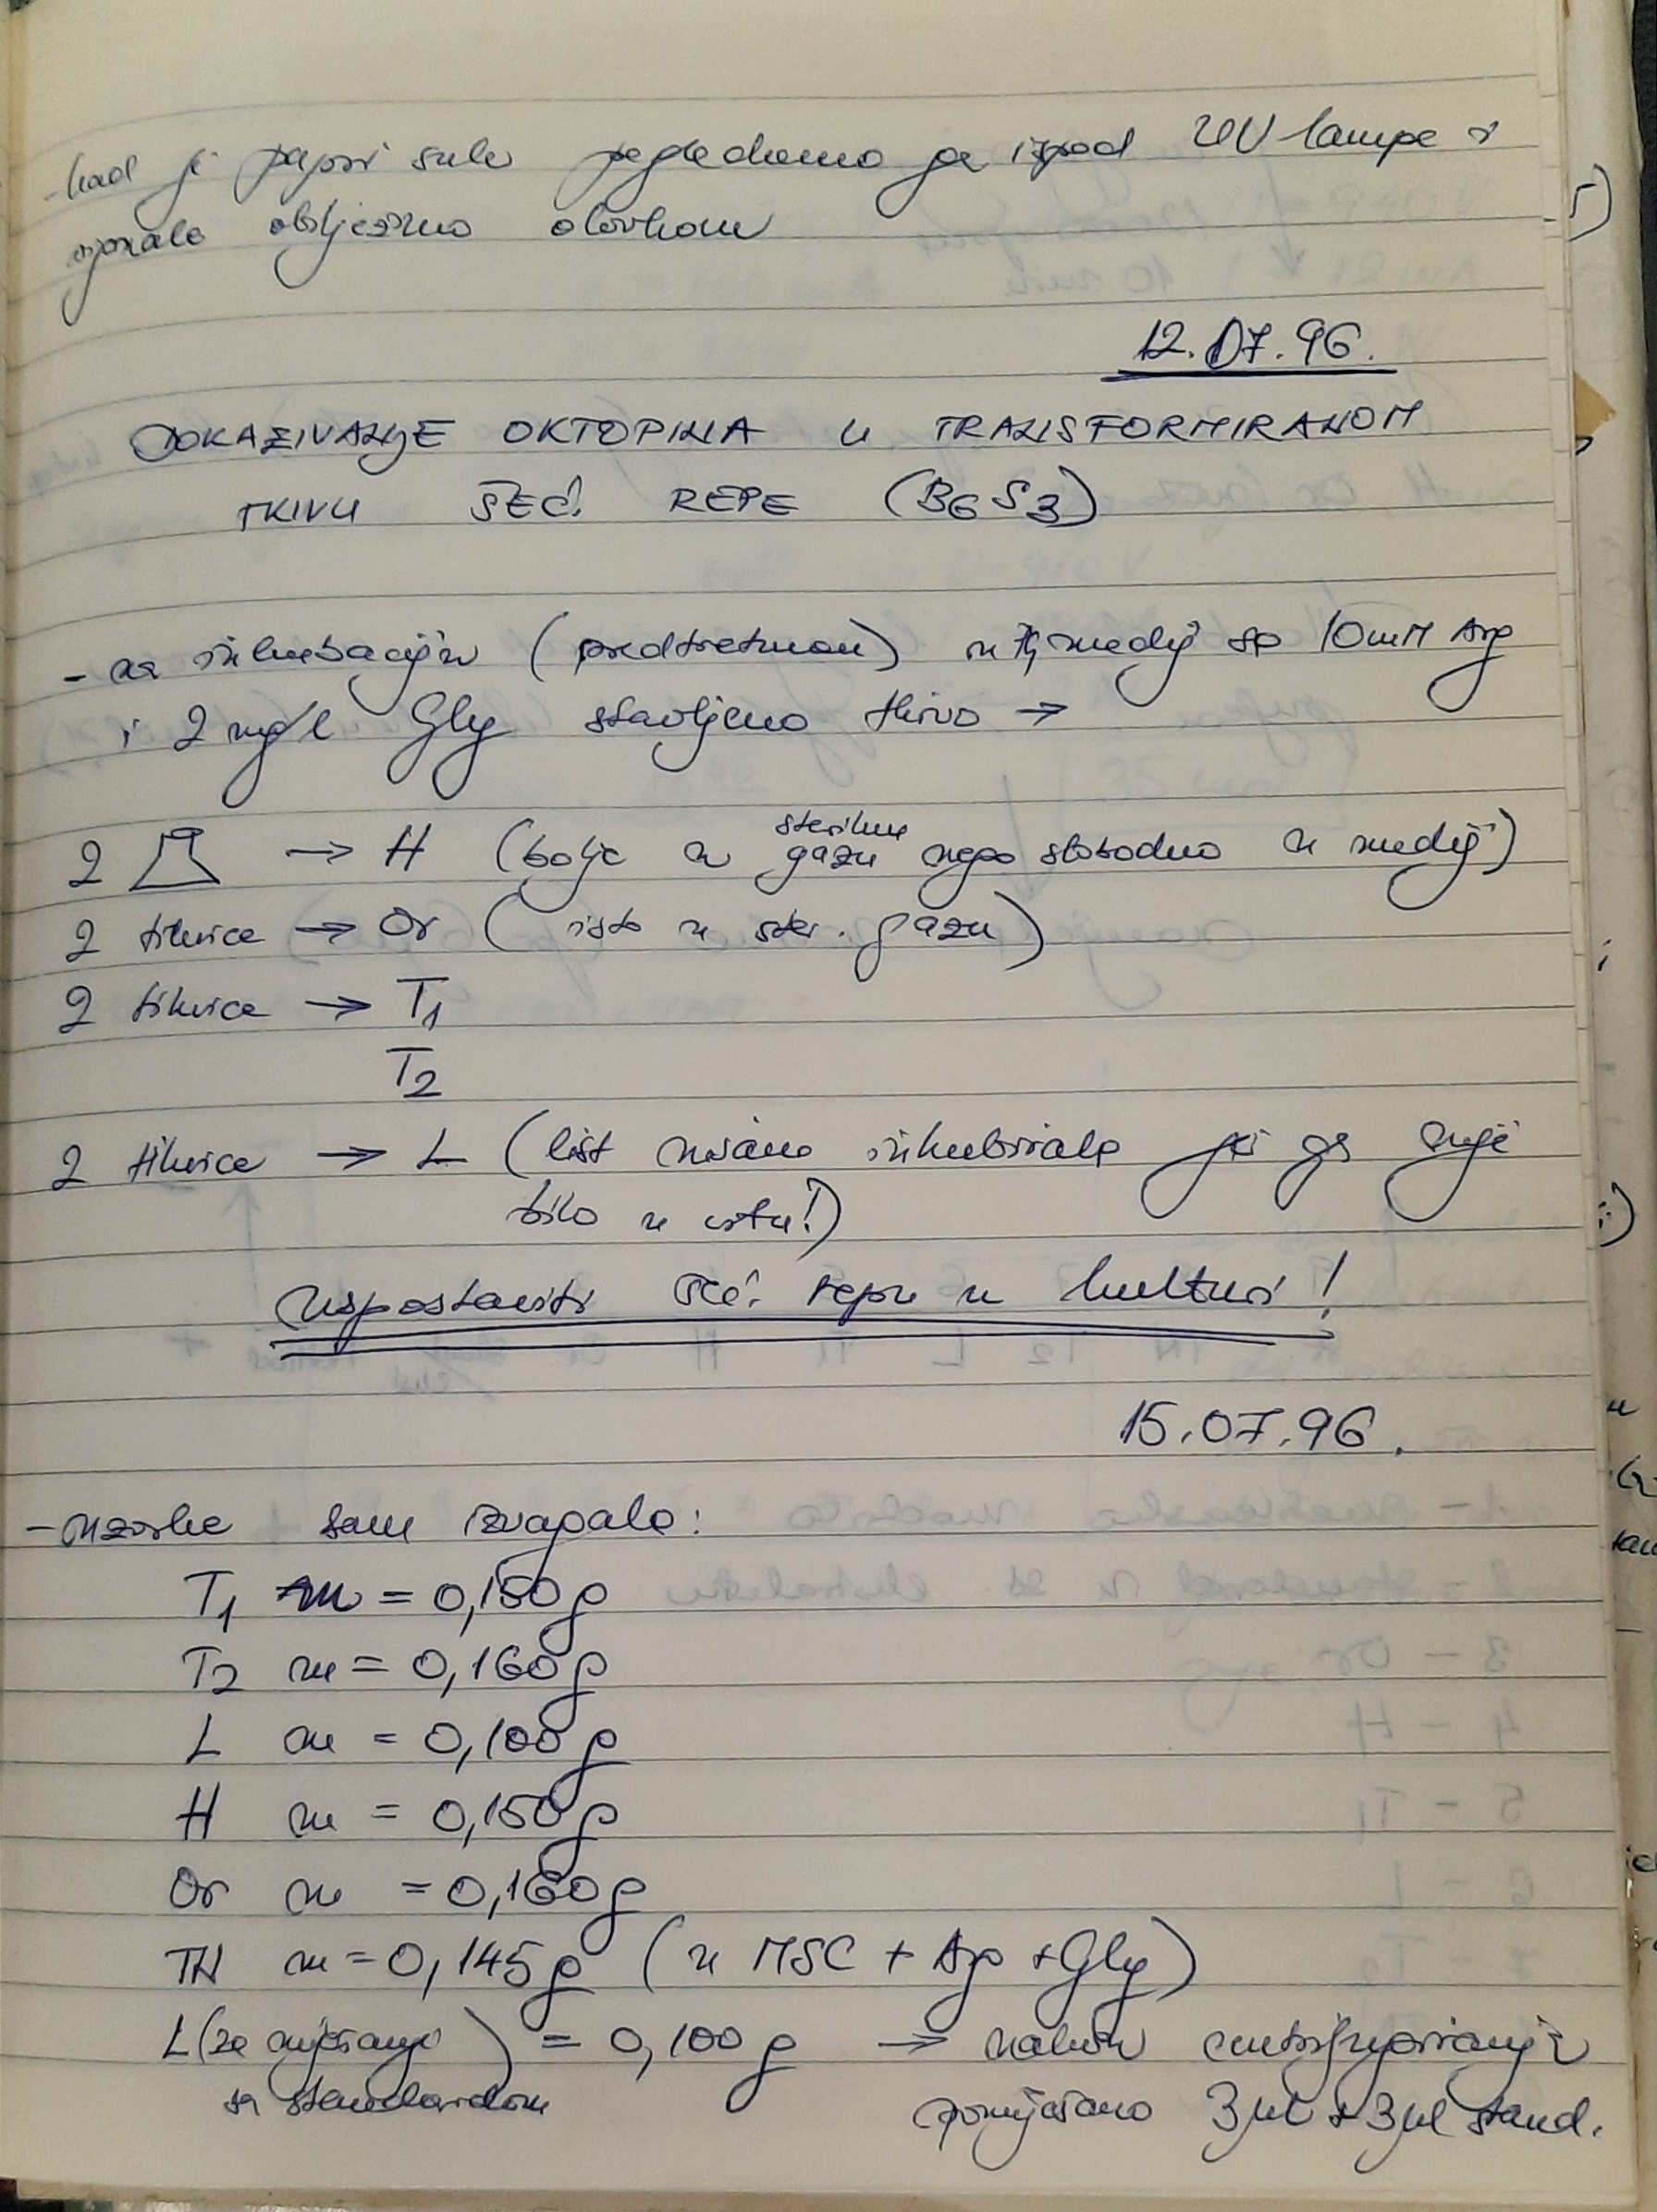 - kad je papir suh pogledamo ga ispod UV lampe i
signale obilježimo olovkom
12.07.96.
DOKAZIVANJE OKTOPINA U TRANSFORMIRANOM
TKIVU ŠEĆ. REPE (B6S3)
- za inkubaciju (predtretman) u tek. medij sa 10mM Arg
i 2 mg/l Gly stavljeno tkivo →
2 → H (bolje u sterilnu gazu nego slobodno u medij)
2 tikvice → Or (isto u ster. gazu)
2 tikvice → T1
T2
2 tikvice → L (list nisam inkubirala jer ga nije
bilo u vitru!)
uspostaviti šeć. repu u kulturi!
15.07.96.
- uzorke sam izvagala:
T1 m = 0,150g
T2 m = 0,160g
L m = 0,100g
H m = 0,150g
Or m = 0,160g
TN m = 0,145g (u MSC + Arg + Gly)
L (za miješanje sa standardom) = 0,100g → nakon centrifugiranja
pomiješano 3µl + 3µl stand.